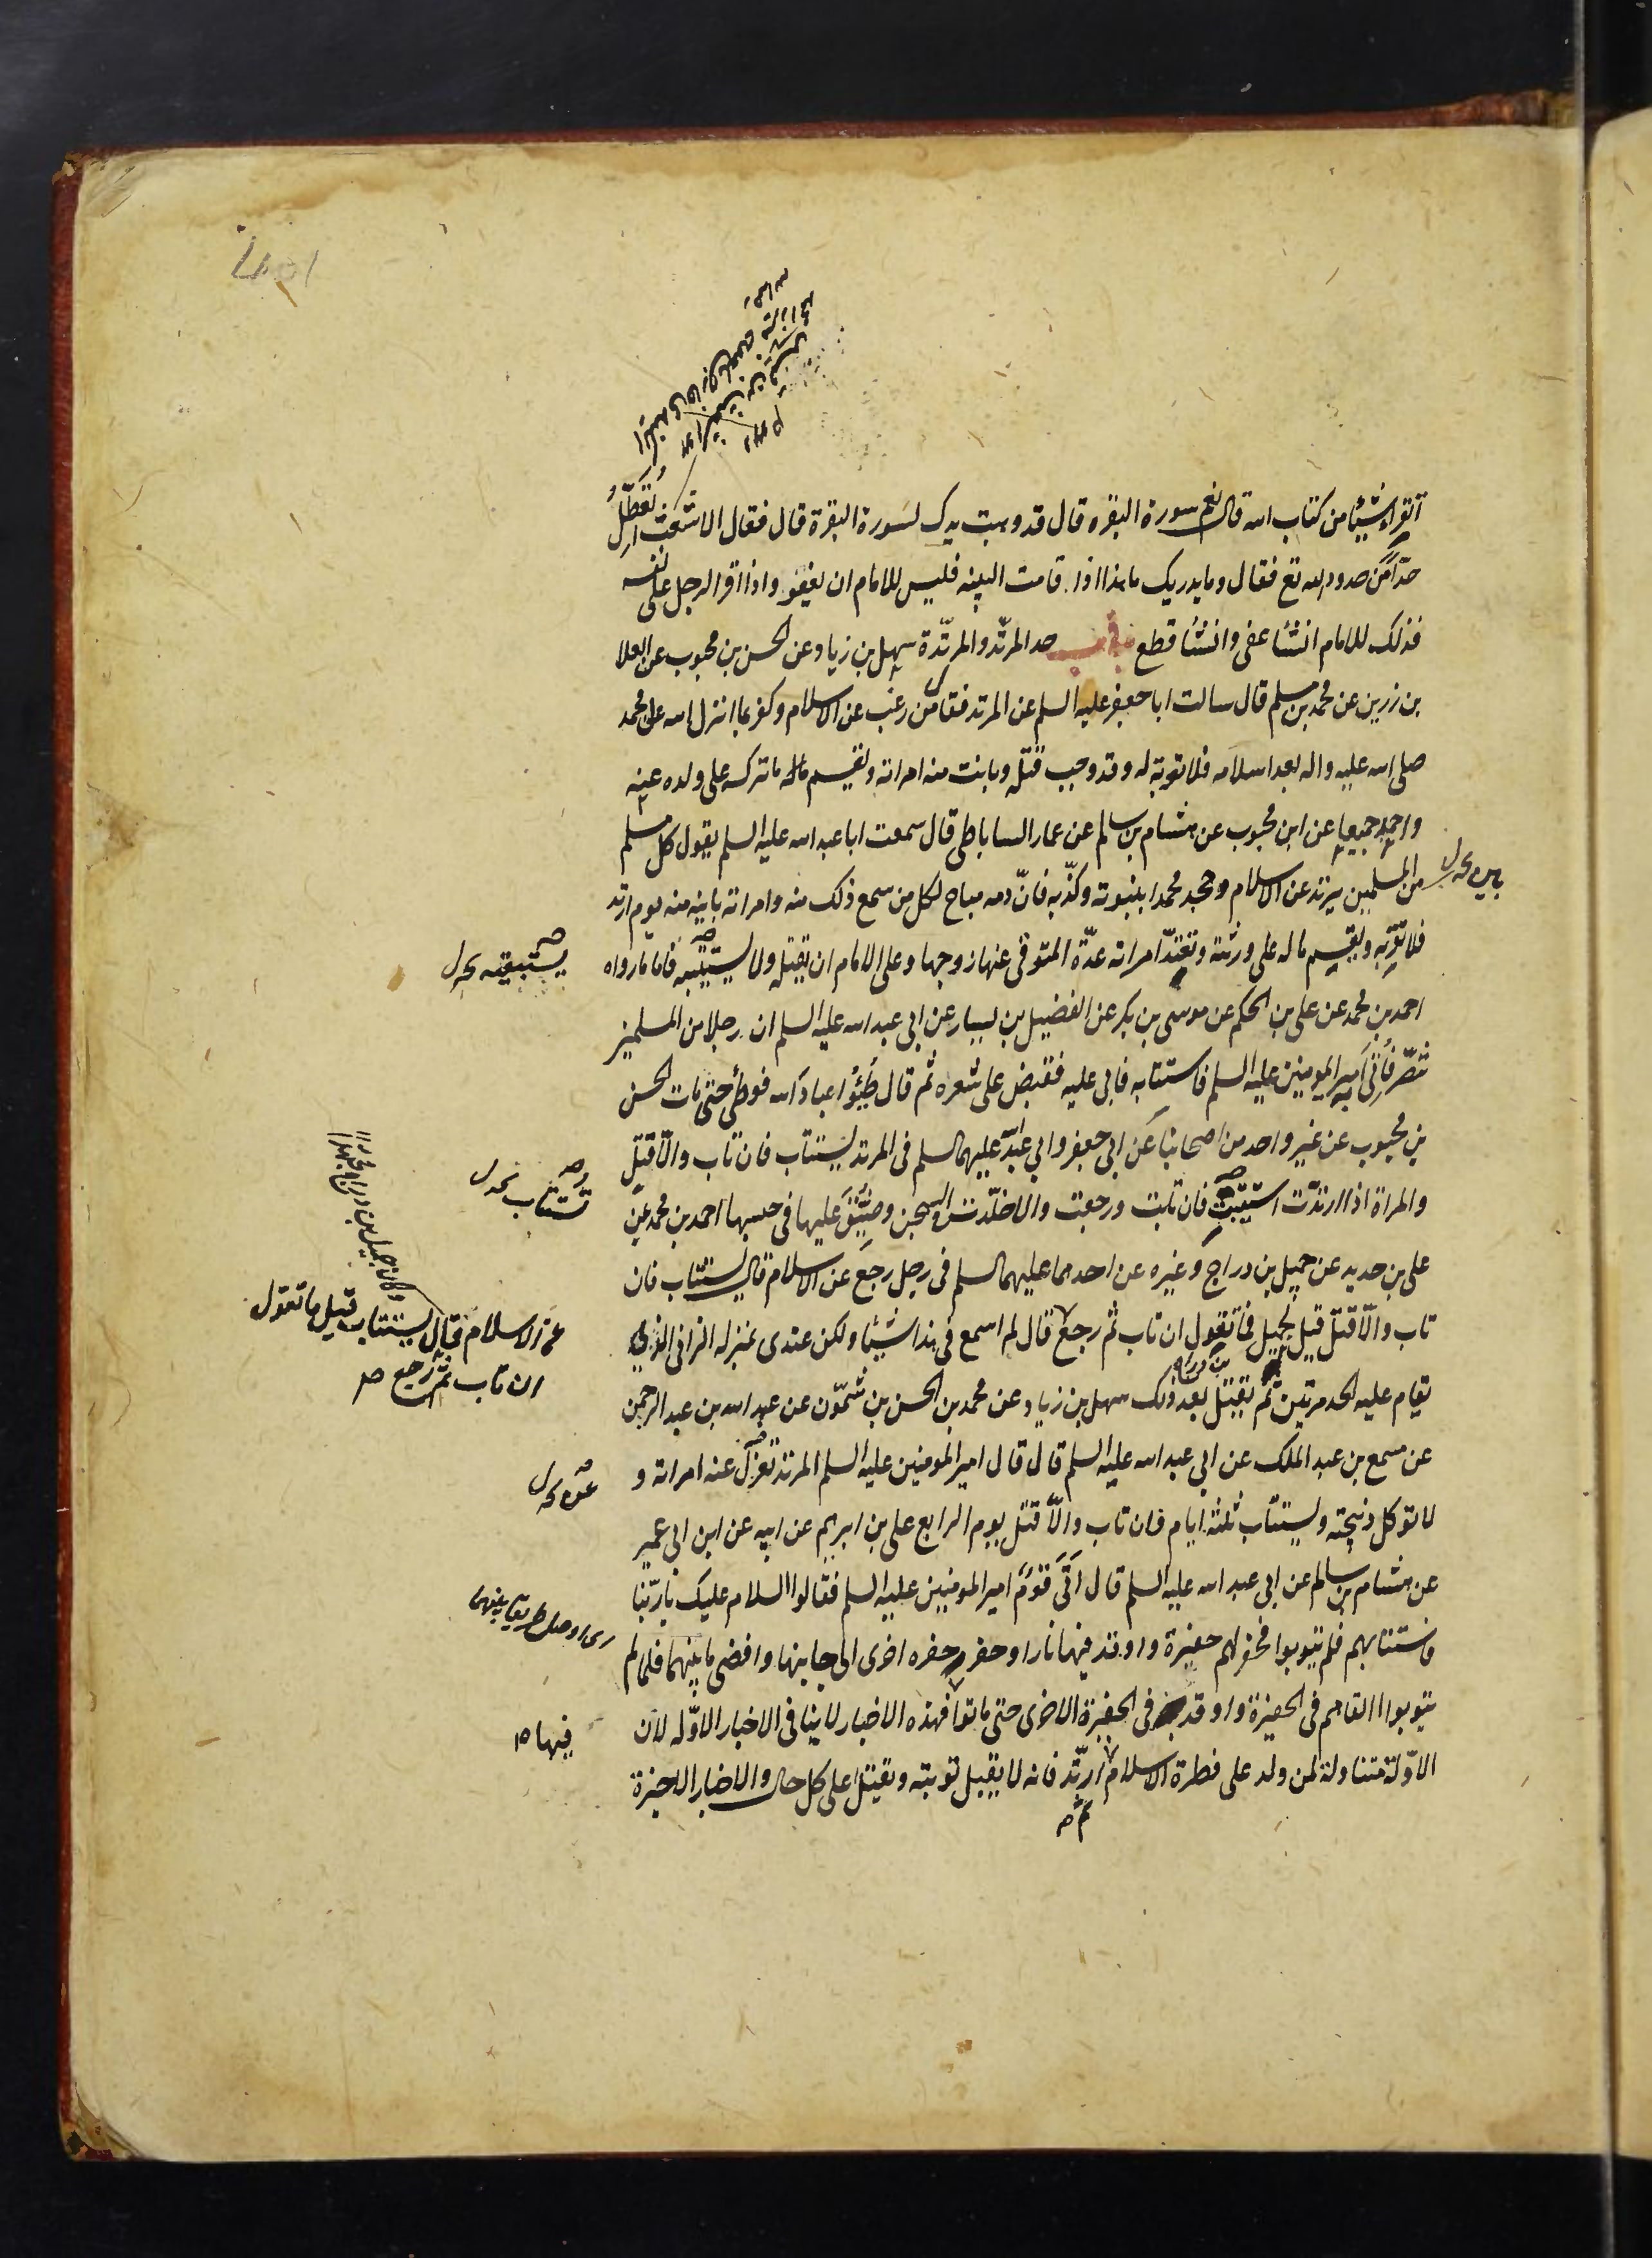 أتقرا شيئا من كتاب الله قال نعم سورة البقره قال قد وهبت يدك لسورة البقرة قال فقال الاشعث اتعطل
حدا من حدود الله تع فقال وما يدريك ما هذا اذا قامت البينه فليس للامام ان يعفو واذا اقر الرجل على نفسه
فذلك للامام ان شا عفى وان شا قطع باب حد المرتد والمرتدة سهل بن زياد عن الحسن بن محبوب عن العلا
بن رزين عن محمد بن مسلم قال سالت ابا جعفر عليه السلم عن المرتد فقال من رغب عن الاسلام وكفر بما انزل الله على محمد
صلى الله عليه واله بعد اسلامه فلا توبة له وقد وجب قتله وبانت منه امراته ويقسم ما ترك على ولده عنه
واحمد جميعا عن ابن محبوب عن هشام بن سالم عن عمار الساباطى قال سمعت ابا عبد الله عليه السلم يقول كل مسلم
من المسلمين يرتد عن الاسلام وجحد محمدا نبوته وكذبه فان دمه مباح لكل من سمع ذلك منه وامراته باينه منه يوم ارتد
فلا تقربه ويقسم ماله على ورثته وتعتد امراته عدة المتوفى عنها زوجها وعلى الامام ان يقتله ولا يستتيبه فاما ما رواه
احمد بن محمد عن على بن الحكم عن موسى بن بكر عن الفضيل بن يسار عن ابى عبد الله عليه السلم ان رجلا من المسلمين
تنصر فاتى امير المومنين عليه السلم فاستتابه فابى عليه فقبض على شعره ثم قال طئوا عباد الله فوطئ حتى مات الحسن
بن محبوب عن غير واحد من اصحابنا عن ابى جعفر وابى عبد الله عليهما السلم فى المرتد يستتاب فان تاب والا قتل
والمراة اذا ارتدت استتيبت فان تابت ورجعت والا خلدت فى السجن وضيق عليها فى حبسها احمد بن محمد عن
على بن حديد عن جميل بن دراج وغيره عن احدهما عليهما السلم فى رجل رجع عن الاسلام قال يستتاب فان
تاب والا قتل قيل لجميل فما تقول ان تاب ثم رجع قال لم اسمع فى هذا شيئا ولكن عندى بمنزله الزانى الذى
بن دراج
يقام عليه الحد مرتين ثم يقتل بعد ذلك سهل بن زياد عن محمد بن الحسن بن شمون عن عبد الله بن عبد الرحمن
عن مسمع بن عبد الملك عن ابى عبد الله عليه السلم قال قال امير المومنين عليه السلم المرتد تعزل عنه امراته و
لا توكل ذبيحته ويستتاب ثلثه ايام فان تاب والا قتل يوم الرابع على بن ابرهيم عن ابيه عن ابن ابى عمير
عن هشام بن سالم عن ابى عبد الله عليه السلم قال اتى قوم امير المومنين عليه السلم فقالوا السلام عليك يا ربنا
فاستتابهم فلم يتوبوا فحفر لهم حفيرة واوقد فيها نارا وحفر حفره اخرى الى جانبها وافضى ما بينهما فلما لم
يتوبوا القاهم فى الحفيرة واوقد فى الحفيرة الاخرى حتى ماتوا فهذه الاخبار لا ينافى الاخبار الاوله لان
الاولة متناولة لمن ولد على فطرة الاسلام ارتد فانه لا يقبل توبته ويقتل على كل حال والاخبار الاخيرة
ثم صح
تستتاب
عن الاسلام فقال يستتاب قيل ما تقول
ان تاب ثم رجع ص
فيها ص